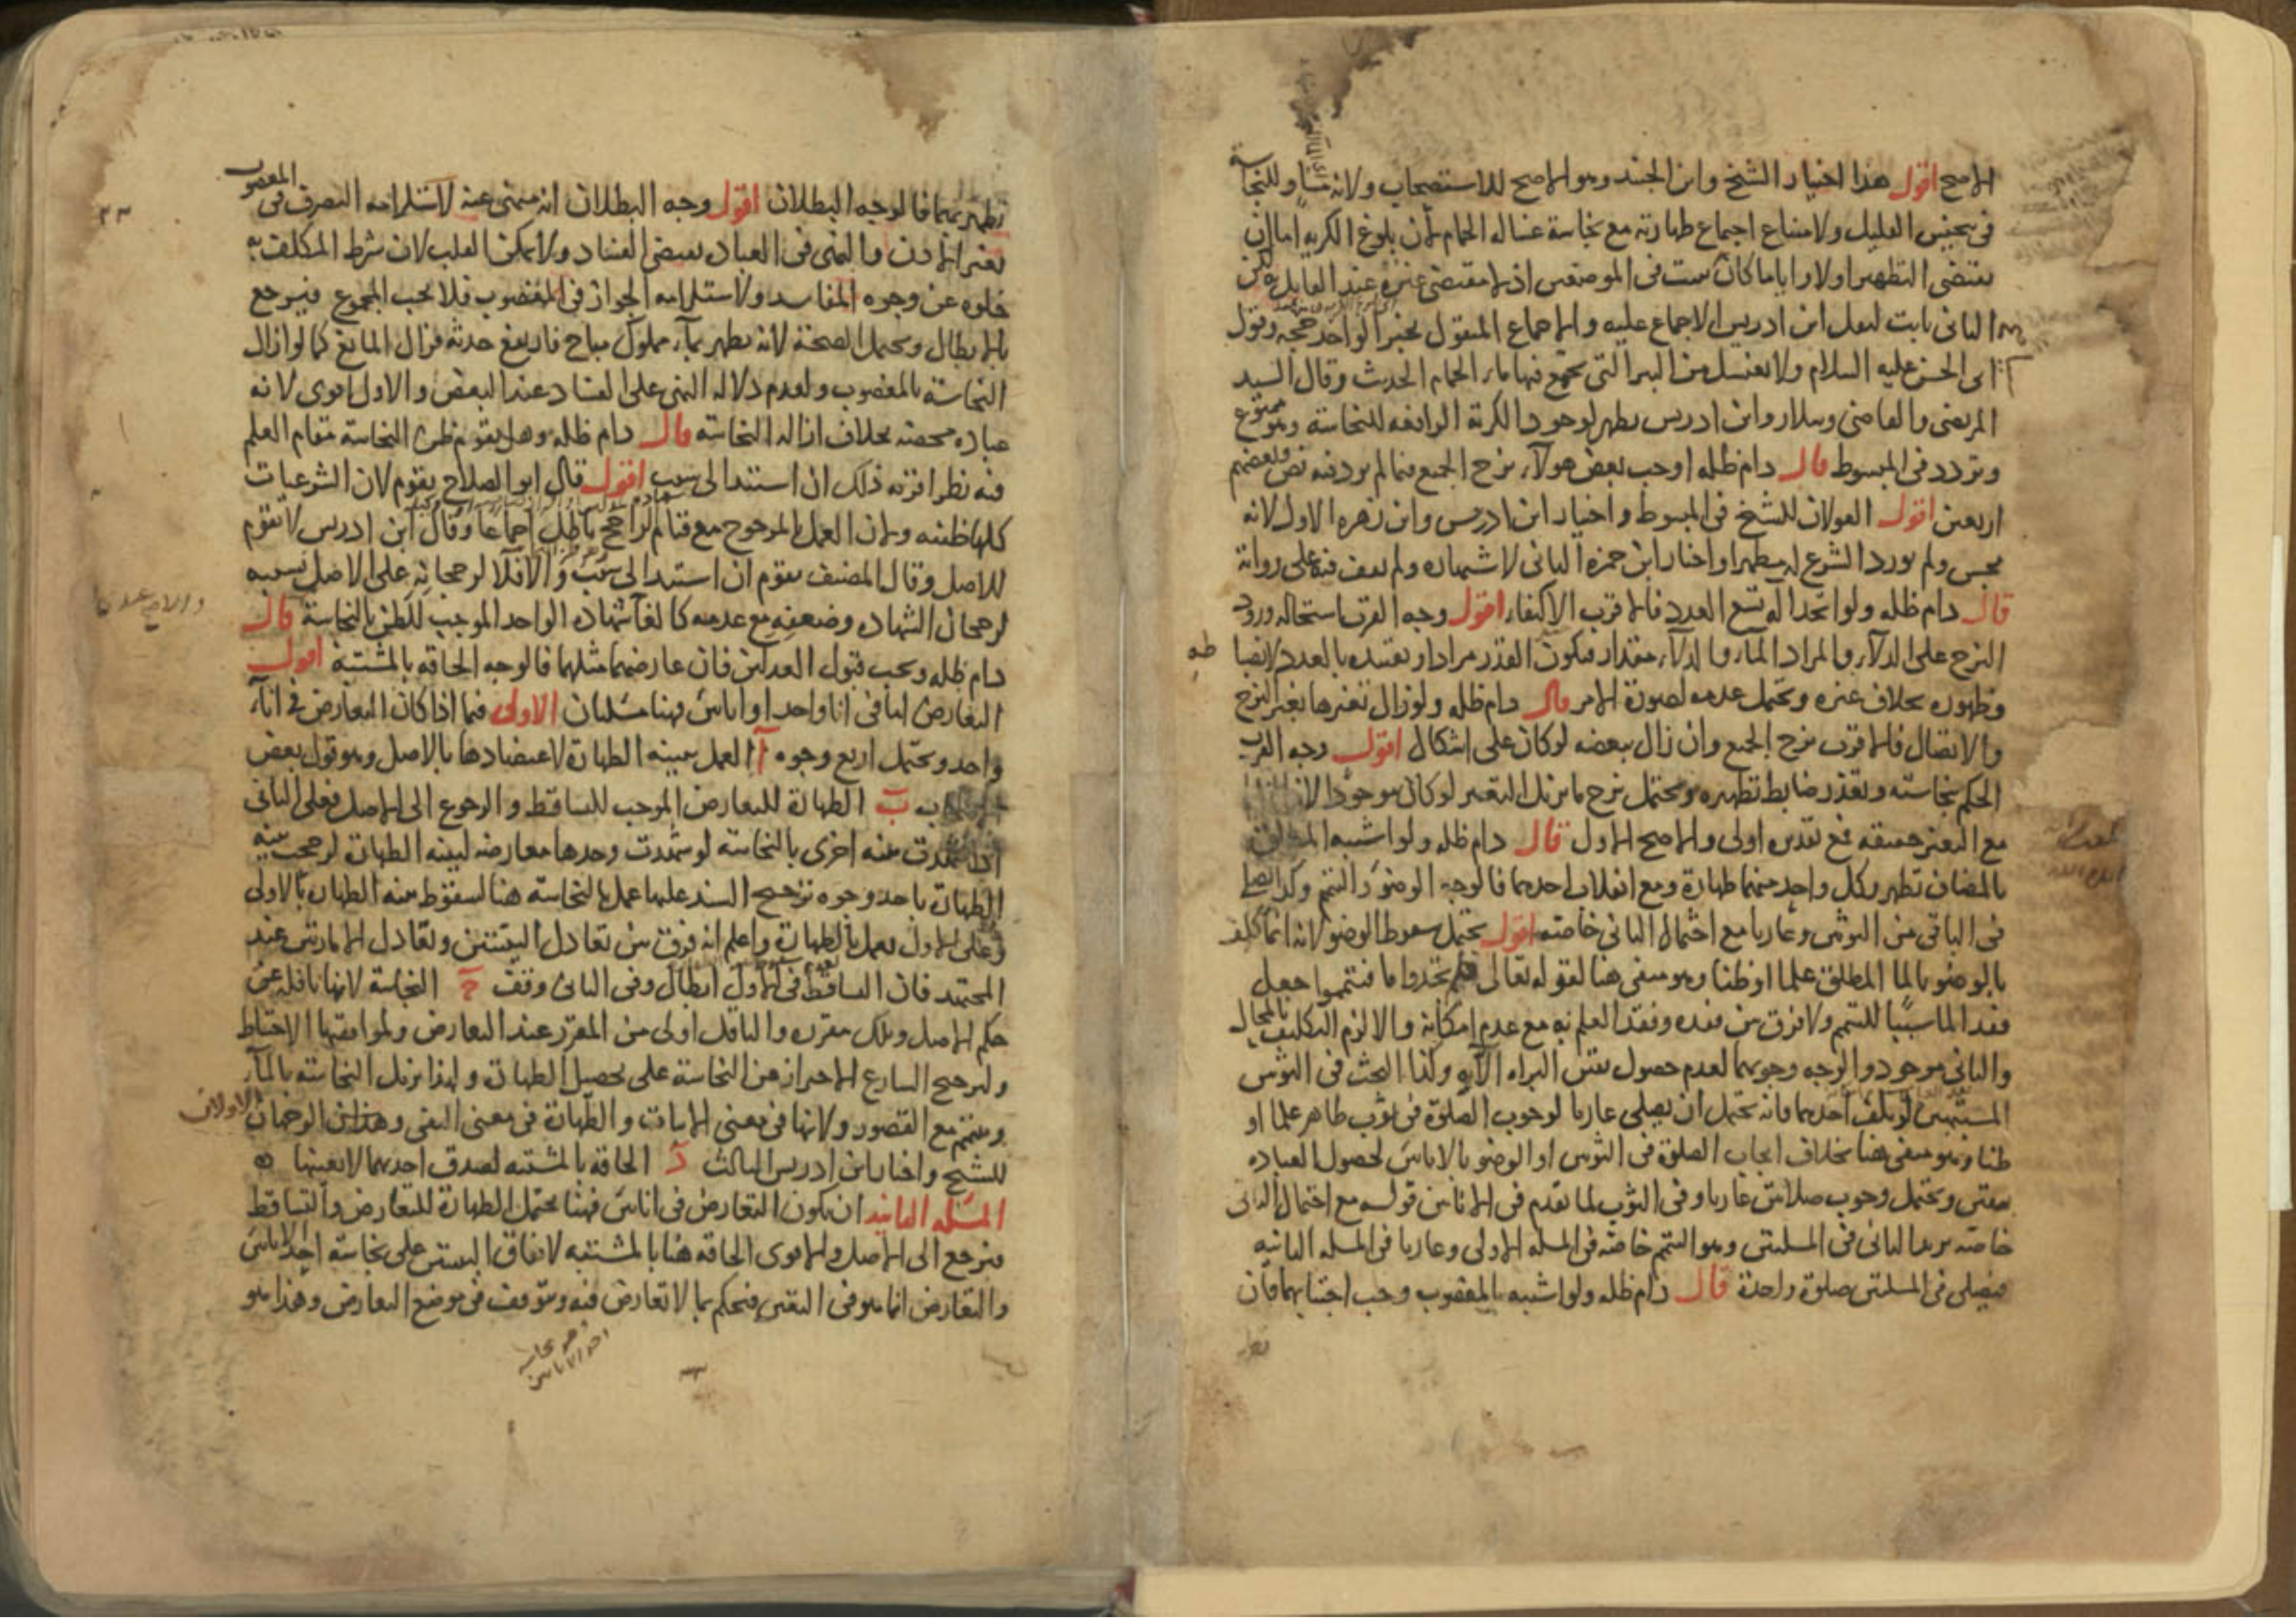 الاصح اقول هذا اختيار الشيخ وابن الجنيد وهو الاصح للاستصحاب ولانه مساو للنجاسة
فى تنجيس القليل ولامتناع اجتماع طهارته مع نجاسة غسالة الحمام لان بلوغ الكرية اما ان
يقتضى التطهير اولا واياما كان ثبت فى الموضعين اذ لا مقتضى غيره عند القايل به لكن
الثانى ثابت لنقل ابن ادريس الاجماع عليه والاجماع المنقول بخبر الواحد حجة وقول
ابى الحسن عليه السلام ولا تغتسل من البير التى تجتمع فيها ماء الحمام الحديث وقال السيد
المرتضى والقاضى وسلار وابن ادريس يطهر لوجود الكرية الرافعة للنجاسة وهو ممنوع
وتردد فى المبسوط قال دام ظله اوجب بعض هولاء نزح الجميع فيما لم يرد فيه نص وبعضهم
اربعين اقول القولان للشيخ فى المبسوط واختيار ابن ادريس وابن زهرة الاول لانه
نجس ولم يورد الشرع له مطهرا واختار ابن حمزة الثانى لاشتهاره ولم نقف فيه على رواية
قال دام ظله ولو اتخذ آلة تسع العدد فالاقرب الاكتفاء اقول وجه القرب استحالة ورود
النزح على الدلاء والمراد الماء والدلاء مقدار فيكون القدر مرادا وتقييده بالعدد لانضباطه
وظهوره بخلاف غيره ويحتمل عدمه لصورة الامر قال دام ظله ولو زال تغيرها بغير النزح
والاتصال فالاقرب نزح الجميع وان زال ببعضه لو كان على اشكال اقول وجه القرب
الحكم بنجاسته وتعذر ضابط تطهيره ويحتمل نزح ما يزيل التغير لو كان موجودا لان
مع التغير حقيقة فمع تقديره اولى والاصح الاول قال دام ظله ولو اشتبه المطلق
بالمضاف تطهر بكل واحد منهما طهارة ومع انقلاب احدهما فالوجه الوضوء والتيمم وكذا يصلى
فى الباقى من الثوبين وعاريا مع احتمال الثانى خاصة اقول يحتمل سقوط الوضوء لانه انما كلف
بالوضوء بالماء المطلق علما او ظنا وهو منفى هنا لقوله تعالى فلم تجدوا ماء فتيمموا جعل
فقد الماء سببا للتيمم ولا فرق بين فقده وفقد العلم به مع عدم امكانه والا لزم التكليف بالمحال
والثانى موجود والوجه وجوبهما لعدم حصول يقين البراءة الا به وكذا البحث فى الثوبين
المشتبهين لو تلف احدهما فانه يحتمل ان يصلى عاريا لوجوب الصلوة فى ثوب طاهر علما او
ظنا وهو منفى هنا بخلاف ايجاب الصلوة فى الثوبين او الوضوء بالاناءين لحصول العبادة
بيقين ويحتمل وجوب صلاتين عاريا وفى الثوب لما تقدم فى الاناءين قوله مع احتمال الثانى
خاصة يريد بالثانى فى المسئلتين وهو التيمم خاصة فى المسئلة الاولى وعاريا فى المسئلة الثانية
فيصلى فى المسئلتين صلوة واحدة قال دام ظله ولو اشتبه بالمغصوب وجب اجتنابهما فان
تطهر
تطهر بهما فالوجه البطلان اقول وجه البطلان انه منهى عنه لاستلزامه التصرف فى المغصوب
بغير اذن والنهى فى العبادة يقتضى الفساد ولا يمكن القلب لان شرط المكلف به
خلوه عن وجوه المفاسد ولاستلزامه الجواز فى المغصوب فلا يجب المجموع فيرجع
بالابطال ويحتمل الصحة لانه تطهر بماء مملوك مباح فارتفع حدثه فزال المانع كما لو ازال
النجاسة بالمغصوب ولعدم دلالة النهى على الفساد عند البعض والاول اقوى لانه
عبادة محضة بخلاف ازالة النجاسة قال دام ظله وهل يقوم ظن النجاسة مقام العلم
فيه نظر اقربه ذلك ان استند الى سبب اقول قال ابو الصلاح يقوم لان الشرعيات
كلها ظنية ولان العمل بالمرجوح مع قيام الراجح باطل اجماعا وقال ابن ادريس لا تقوم
للاصل وقال المصنف يقوم ان استند الى سبب والا فلا لرجحانه على الاصل بسببه
لرجحان الشهادة وضعفه مع عدمه كالغاء شهادة الواحد الموجب للظن بالنجاسة قال
دام ظله ويجب قبول العدلين فان عارضهما مثلهما فالوجه الحاقه بالمشتبه اقول
التعارض اما فى اناء واحد او اناءين فهنا مسئلتان الاولى فيما اذا كان التعارض فى اناء
واحد ويحتمل اربع وجوه آ العمل ببينة الطهارة لاعتضادها بالاصل وهو قول بعض
ب الطهارة للتعارض الموجب للتساقط والرجوع الى الاصل فعلى الثانى
شهدت بينة اخرى بالنجاسة لو شهدت وحدها معارضة لبينة الطهارة لرجحت بينة
الطهارة باحد وجوه ترجيح السند عليها عمل بالنجاسة هنا لسقوط بينة الطهارة بالاولى
وعلى الاول يعمل بالطهارة واعلم انه فرق بين تعادل البينتين وتعادل الامارتين عند
المجتهد فان التساقط فى الاول ابطال وفى الثانى وقف ج النجاسة لانها ناقلة عن
حكم الاصل وتلك مقررة والناقل اولى من المقرر عند التعارض ولموافقتها الاحتياط
ولترجيح الشارع الاحتراز من النجاسة على تحصيل الطهارة ولهذا يزيل النجاسة بالماء
ويتيمم مع القصور ولانها فى معنى الاثبات والطهارة فى معنى النفى وهذان الوجهان الاولان
للشيخ واختار ابن ادريس الثالث د الحاقه بالمشتبه لصدق احدهما لا بعينها
المسئلة الثانية ان يكون التعارض فى اناءين فهنا يحتمل الطهارة للتعارض والتساقط
فيرجع الى الاصل والاقوى الحاقه هنا بالمشتبه لاتفاق البينتين على نجاسة احد الاناءين
والتعارض انما هو فى التعيين فنحكم بما لا تعارض فيه ونتوقف فى موضع التعارض وهذا هو
وهو نجاسة
احد الاناءين